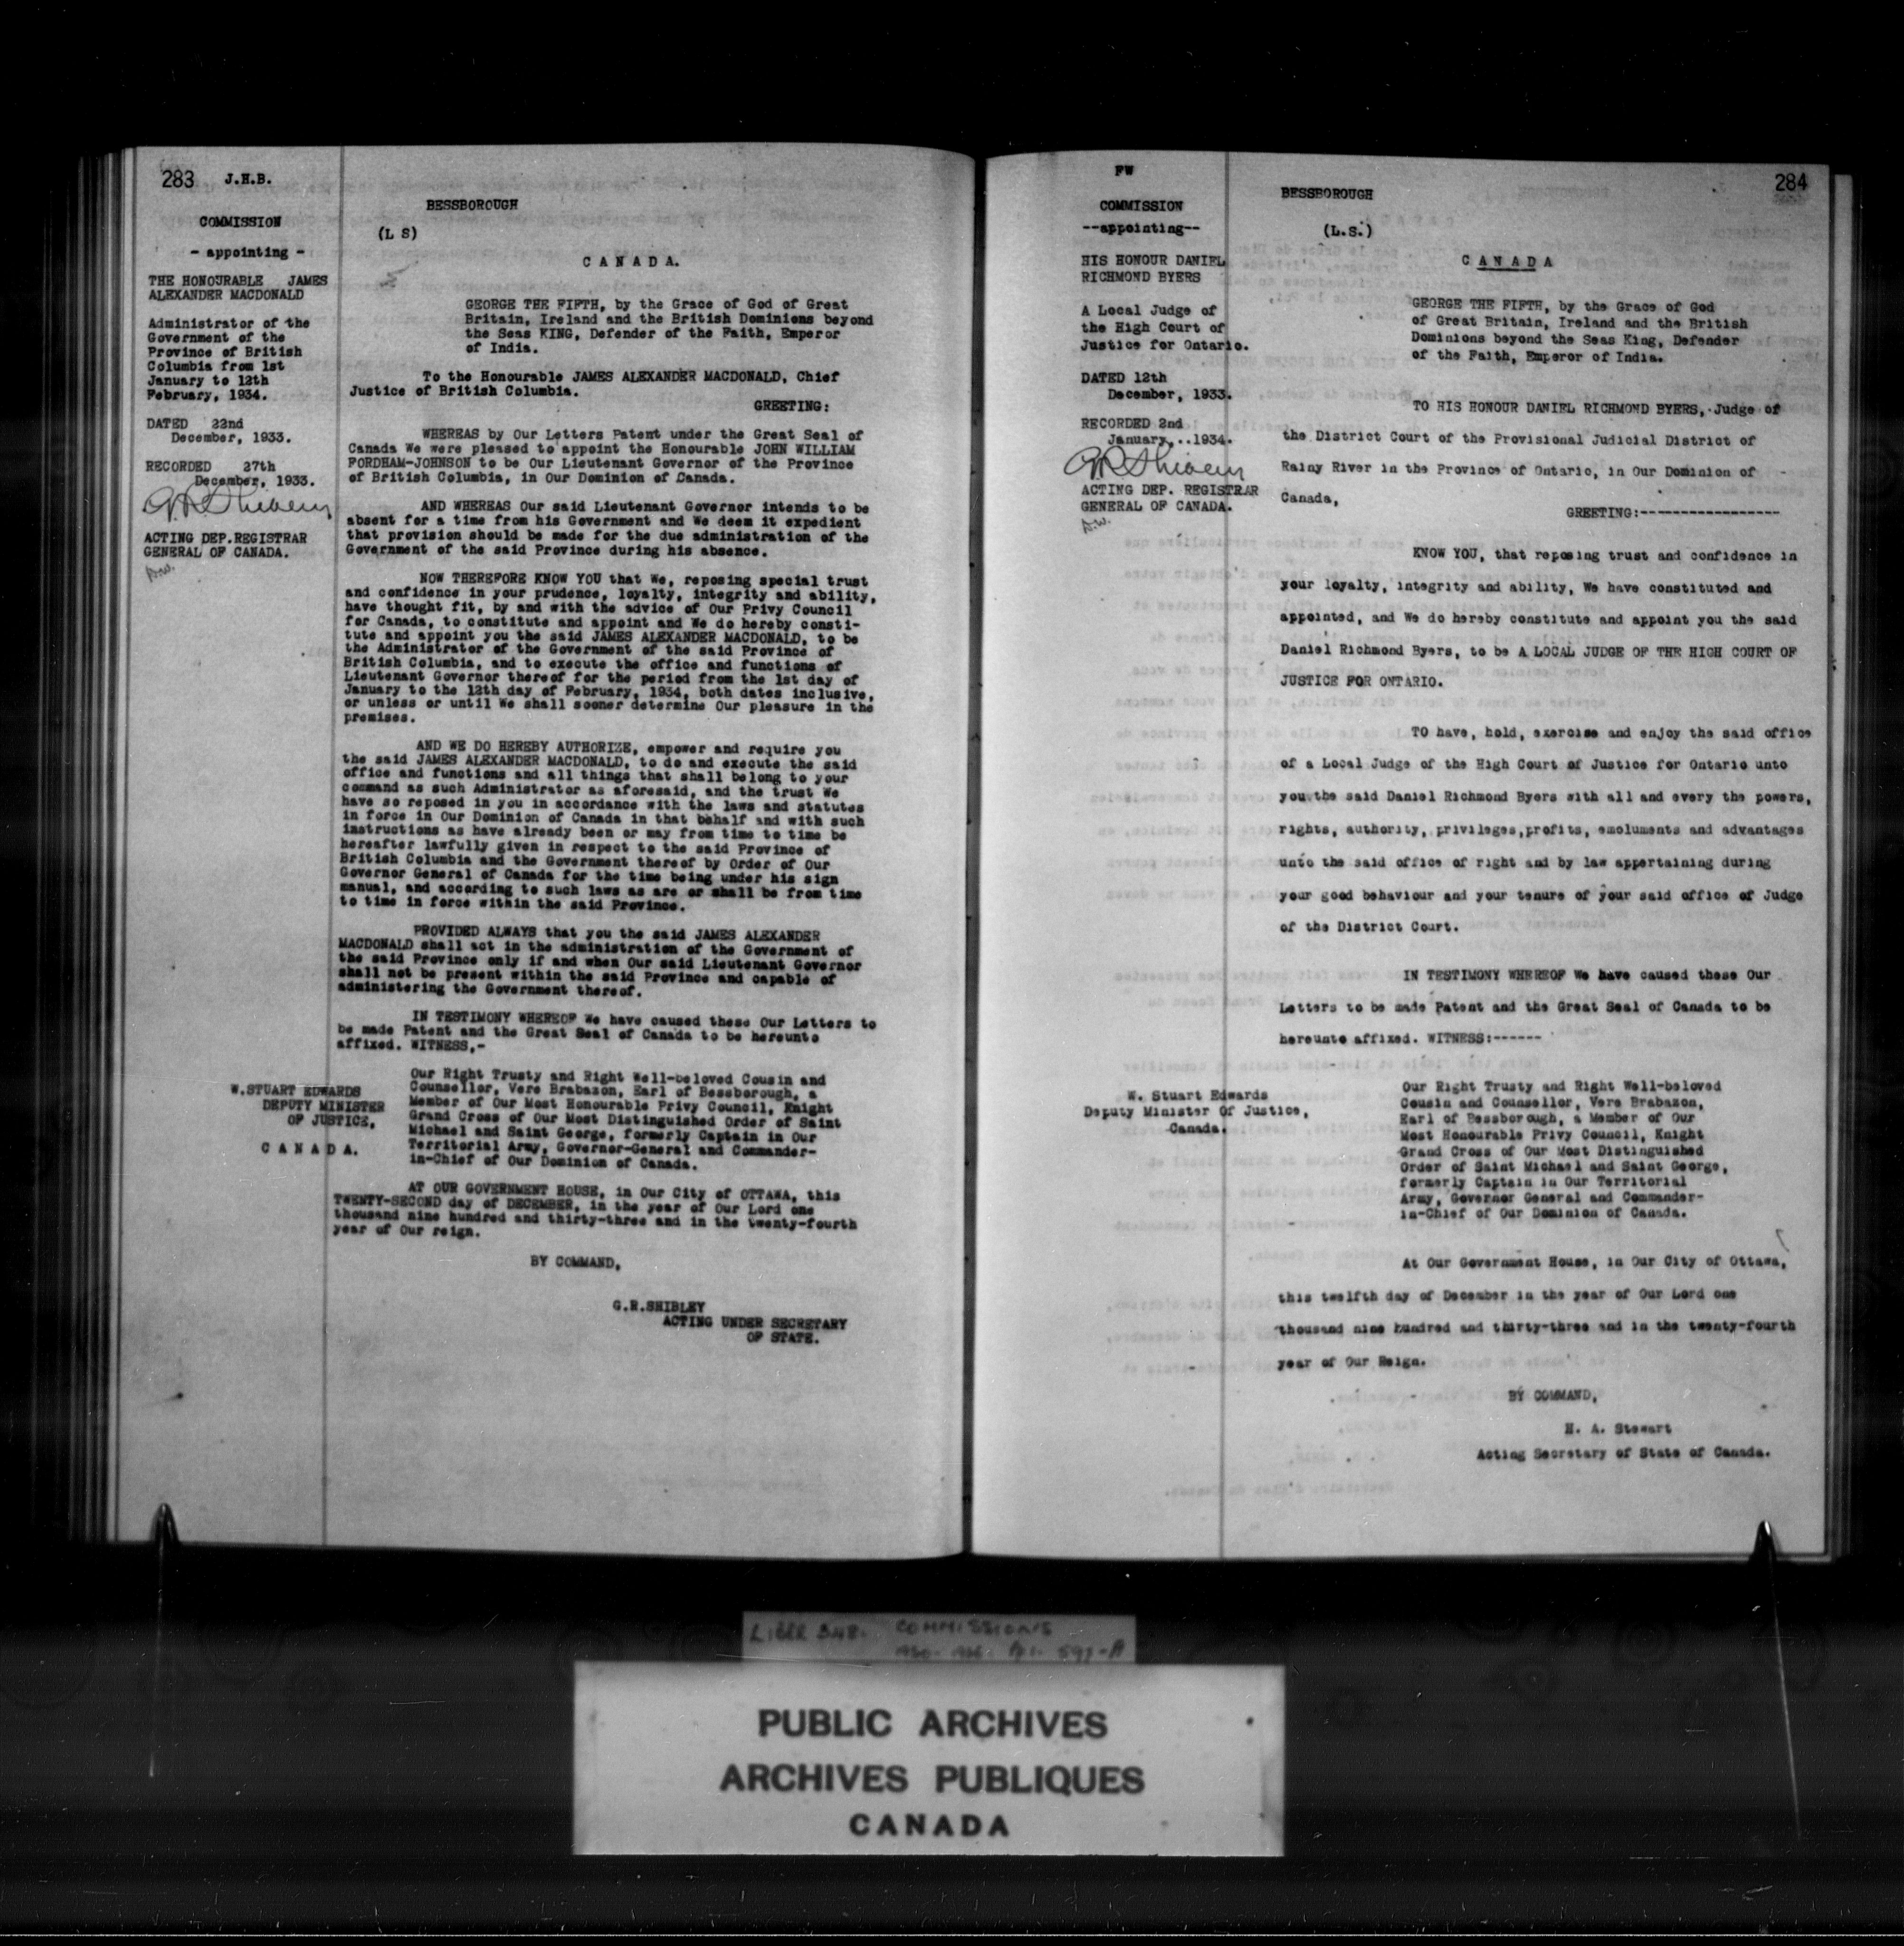 283 J.H.B.
COMMISSION
- appointing -
THE HONOURABLE JAMES
ALEXANDER MACDONALD
Administrator of the
Government of the
Province of British
Columbia from 1st
January to 12th
February, 1934.
DATED 22nd
December, 1933.
RECORDED 27th
December, 1933.
ACTING DEP.REGISTRAR
GENERAL OF CANADA.
BESSBOROUGH
(L S)
C A N A D A.
GEORGE THE FIFTH, by the Grace of God of Great
Britain, Ireland and the British Dominions beyond
the Seas KING, Defender of the Faith, Emperor
of India.
To the Honourable JAMES ALEXANDER MACDONALD, Chief
Justice of British Columbia.
GREETING:
WHEREAS by Our Letters Patent under the Great Seal of
Canada We were pleased to appoint the Honourable JOHN WILLIAM
FORDHAM-JOHNSON to be Our Lieutenant Governor of the Province
of British Columbia, in Our Dominion of Canada.
AND WHEREAS Our said Lieutenant Governor intends to be
absent for a time from his Government and We deem it expedient
that provision should be made for the due administration of the
Government of the said Province during his absence.
NOW THEREFORE KNOW YOU that We, reposing special trust
and confidence in your prudence, loyalty, integrity and ability,
have thought fit, by and with the advice of Our Privy Council
for Canada, to constitute and appoint and We do hereby consti-
tute and appoint you the said JAMES ALEXANDER MACDONALD, to be
the Administrator of the Government of the said Province of
British Columbia, and to execute the office and functions of
Lieutenant Governor thereof for the period from the 1st day of
January to the 12th day of February, 1934, both dates inclusive,
or unless or until We shall sooner determine Our pleasure in the
premises.
AND WE DO HEREBY AUTHORIZE, empower and require you
the said JAMES ALEXANDER MACDONALD, to do and execute the said
office and functions and all things that shall belong to your
command as such Administrator as aforesaid, and the trust We
have so reposed in you in accordance with the laws and statutes
in force in Our Dominion of Canada in that behalf and with such
instructions as have already been or may from time to time be
hereafter lawfully given in respect to the said Province of
British Columbia and the Government thereof by Order of Our
Governor General of Canada for the time being under his sign
manual, and according to such laws as are or shall be from time
to time in force within the said Province.
PROVIDED ALWAYS that you the said JAMES ALEXANDER
MACDONALD shall act in the administration of the Government of
the said Province only if and when Our said Lieutenant Governor
shall not be present within the said Province and capable of
administering the Government thereof.
IN TESTIMONY WHEREOF We have caused these Our Letters to
be made Patent and the Great Seal of Canada to be hereunto
affixed. WITNESS,-
W.STUART EDWARDS
DEPUTY MINISTER
OF JUSTICE,
C A N A D A.
Our Right Trusty and Right Well-beloved Cousin and
Counsellor, Vere Brabazon, Earl of Bessborough, a
Member of Our Most Honourable Privy Council, Knight
Grand Cross of Our Most Distinguished Order of Saint
Michael and Saint George, formerly Captain in Our
Territorial Army, Governor-General and Commander-
in-Chief of Our Dominion of Canada.
AT OUR GOVERNMENT HOUSE, in Our City of OTTAWA, this
TWENTY-SECOND day of DECEMBER, in the year of Our Lord one
thousand nine hundred and thirty-three and in the twenty-fourth
year of Our reign.
BY COMMAND,
G.R.SHIBLEY
ACTING UNDER SECRETARY
OF STATE.
FW
284
COMMISSION
--appointing--
HIS HONOUR DANIEL
RICHMOND BYERS
A Local Judge of
the High Court of
Justice for Ontario.
DATED 12th
December, 1933.
RECORDED 2nd
January,..1934.
ACTING DEP. REGISTRAR
GENERAL OF CANADA.
BESSBOROUGH
(L.S.)
C A N A D A
GEORGE THE FIFTH, by the Grace of God
of Great Britain, Ireland and the British
Dominions beyond the Seas King, Defender
of the Faith, Emperor of India.
TO HIS HONOUR DANIEL RICHMOND BYERS, Judge of
the District Court of the Provisional Judicial District of
Rainy River in the Province of Ontario, in Our Dominion of
Canada,
GREETING:-----------------
KNOW YOU, that reposing trust and confidence in
your loyalty, integrity and ability, We have constituted and
appointed, and We do hereby constitute and appoint you the said
Daniel Richmond Byers, to be A LOCAL JUDGE OF THE HIGH COURT OF
JUSTICE FOR ONTARIO.
TO have, hold, exercise and enjoy the said office
of a Local Judge of the High Court of Justice for Ontario unto
you the said Daniel Richmond Byers with all and every the powers,
rights, authority, privileges,profits, emoluments and advantages
unto the said office of right and by law appertaining during
your good behaviour and your tenure of your said office of Judge
of the District Court.
IN TESTIMONY WHEREOF We have caused these Our
Letters to be made Patent and the Great Seal of Canada to be
hereunto affixed. WITNESS:------
W. Stuart Edwards
Deputy Minister Of Justice,
Canada.
Our Right Trusty and Right Well-beloved
Cousin and Counsellor, Vere Brabazon,
Earl of Bessborough, a Member of Our
Most Honourable Privy Council, Knight
Grand Cross of Our Most Distinguished
Order of Saint Michael and Saint George,
formerly Captain in Our Territorial
Army, Governor General and Commander-
in-Chief of Our Dominion of Canada.
At Our Government House, in Our City of Ottawa,
this twelfth day of December in the year of Our Lord one
thousand nine hundred and thirty-three and in the twenty-fourth
year of Our Reign.
BY COMMAND,
H. A. Stewart
Acting Secretary of State of Canada.
LIBER 348. COMMISSIONS
PUBLIC ARCHIVES
ARCHIVES PUBLIQUES
CANADA